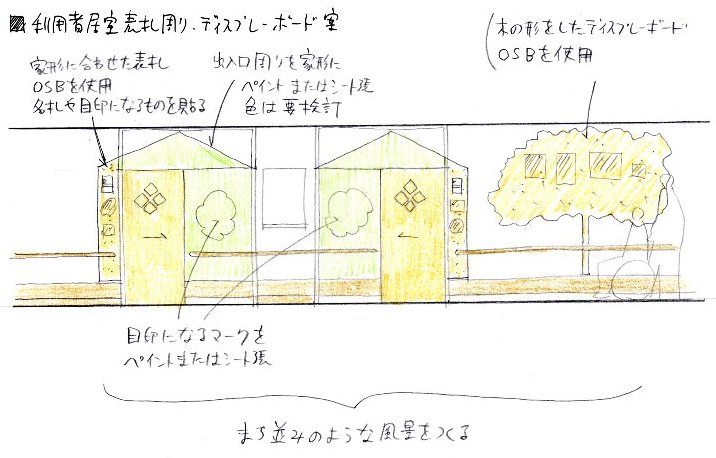 利用者居室表札周り、ディスプレーボード案
木の形をしたディスプレーボード
OSBを使用
家形に合わせた表札
OSBを使用
名札や目印になるものを貼る
出入口周りを家形に
ペイントまたはシート張
色は要検討
目印になるマークを
ペイントまたはシート張
まち並みのような風景をつくる